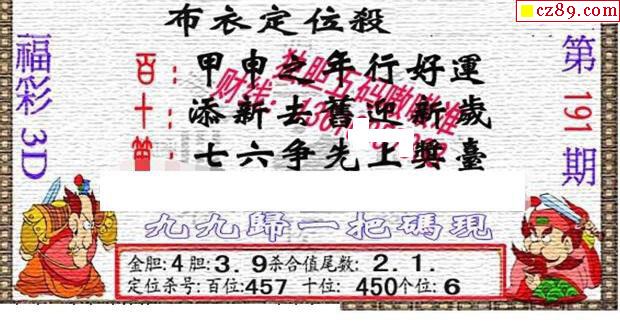 cz89.com
布衣定位殺
福彩3D
第191期
百：甲申之年行好運
十：添新去舊迎新歲
：七六争先上獎臺
九九歸一把碼現
金胆:4胆:3.9杀合值尾数:2.1.
定位杀号:百位:457 十位:450个位:6